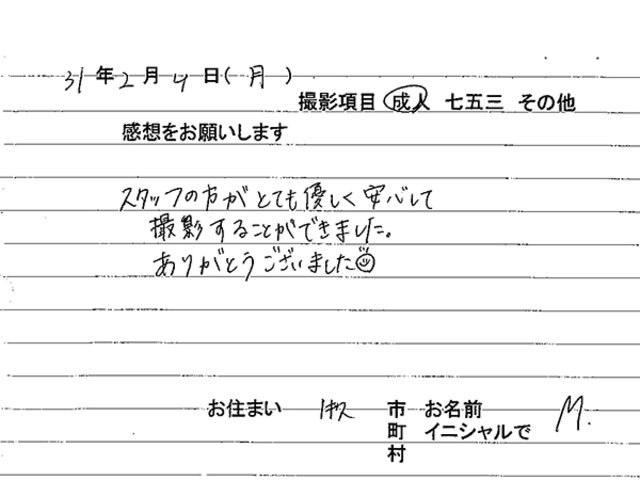 31年2月4日(月)
撮影項目 成人 七五三 その他
感想をお願いします
スタッフの方がとても優しく安心して
撮影することができました。
ありがとうございました☺
お住まい 市 お名前 M.
町 イニシャルで
村